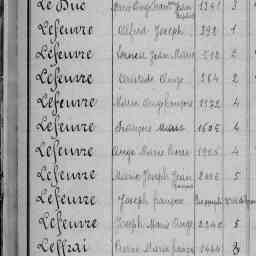 Le Duc Jean 1341 3
Lefeuvre Alfred Joseph 392 1
Lefeuvre Ernest Jean Marie 512 2
Lefeuvre Aristide Ange 564 2
Lefeuvre Marie Ange François 1372 4
Lefeuvre François Marie 1605 4
Lefeuvre Ange Marie Pierre 1926 4
Lefeuvre Marie Joseph Jean 2006 5
Lefeuvre Joseph François
Lefeuvre Joseph Marie Ange 2240 5
Leffrai Pierre Marie 1444 3